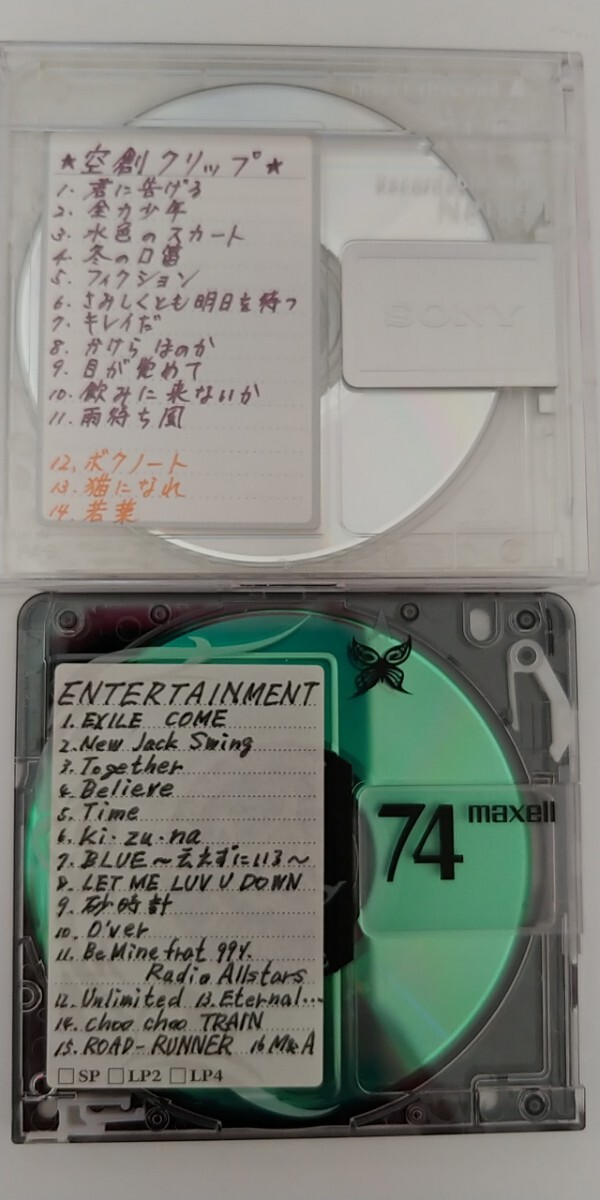 ★空創クリップ★
1. 君に告げる
2. 全力少年
3. 水色のスカート
4. 冬の口笛
5. フィクション
6. さみしくとも明日を待つ
7. キレイだ
8. かけら ほのか
9. 目が覚めて
10. 飲みに来ないか
11. 雨待ち風
12. ボクノート
13. 猫になれ
14. 若葉
SONY
ENTERTAINMENT
1. EXILE COME
2. New Jack Swing
3. Together
4. Believe
5. Time
6. Ki・zu・na
7. BLUE ～ええずにいる～
8. LET ME LUV U DOWN
9. 砂時計
10. O'ver
11. Be Mine frat 99Y.
Radio Allstars
12. Unlimited 13. Eternal...
14. choo choo TRAIN
15. ROAD-RUNNER 16 M&A
□SP □LP2 □LP4
74 maxell